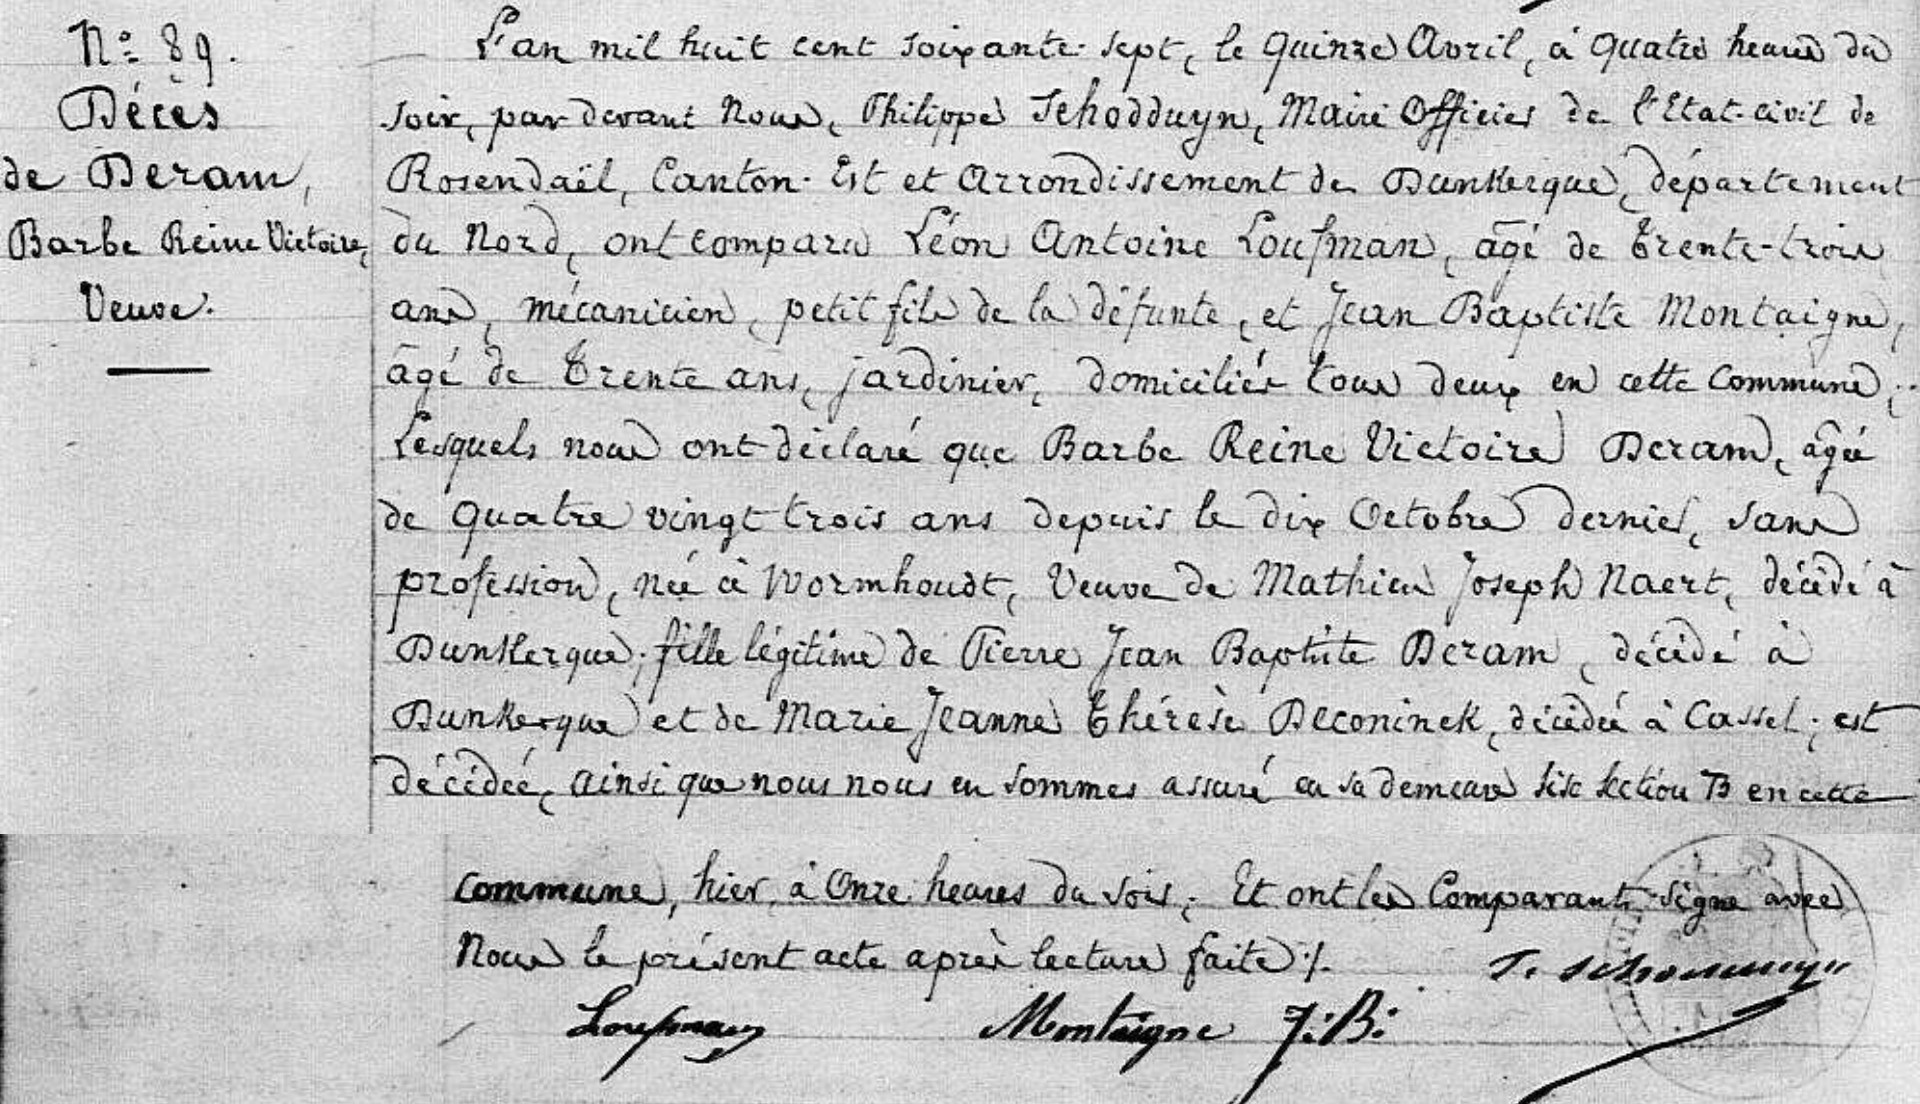 N° 89.
Décès
de Deram,
Barbe Reine Victoire,
Veuve.
L'an mil huit cent soixante-sept, le Quinze Avril, à Quatre heures du
soir, par devant Nous, Philippe Schodduyn, Maire Officier de l'Etat-civil de
Rosendaël, Canton-Est et Arrondissement de Dunkerque, département
du Nord, ont comparu Léon Antoine Loufman, âgé de trente-trois
ans, mécanicien, petit fils de la défunte, et Jean Baptiste Montaigne,
âgé de trente ans, jardinier, domiciliés tous deux en cette Commune;
Lesquels nous ont déclaré que Barbe Reine Victoire Deram, âgée
de quatre vingt trois ans depuis le dix Octobre dernier, sans
profession, née à Wormhoudt, Veuve de Mathieu Joseph Naert, décédé à
Dunkerque; fille légitime de Pierre Jean Baptiste Deram, décédé à
Dunkerque et de Marie Jeanne Thérèse Deconinck, décédée à Cassel; est
décédée, ainsi que nous nous en sommes assuré en sa demeure sise section B en cette
commune, hier, à Onze heures du soir; Et ont les Comparants signé avec
Nous le présent acte après lecture faite ./.
Loufman Montaigne J: B: